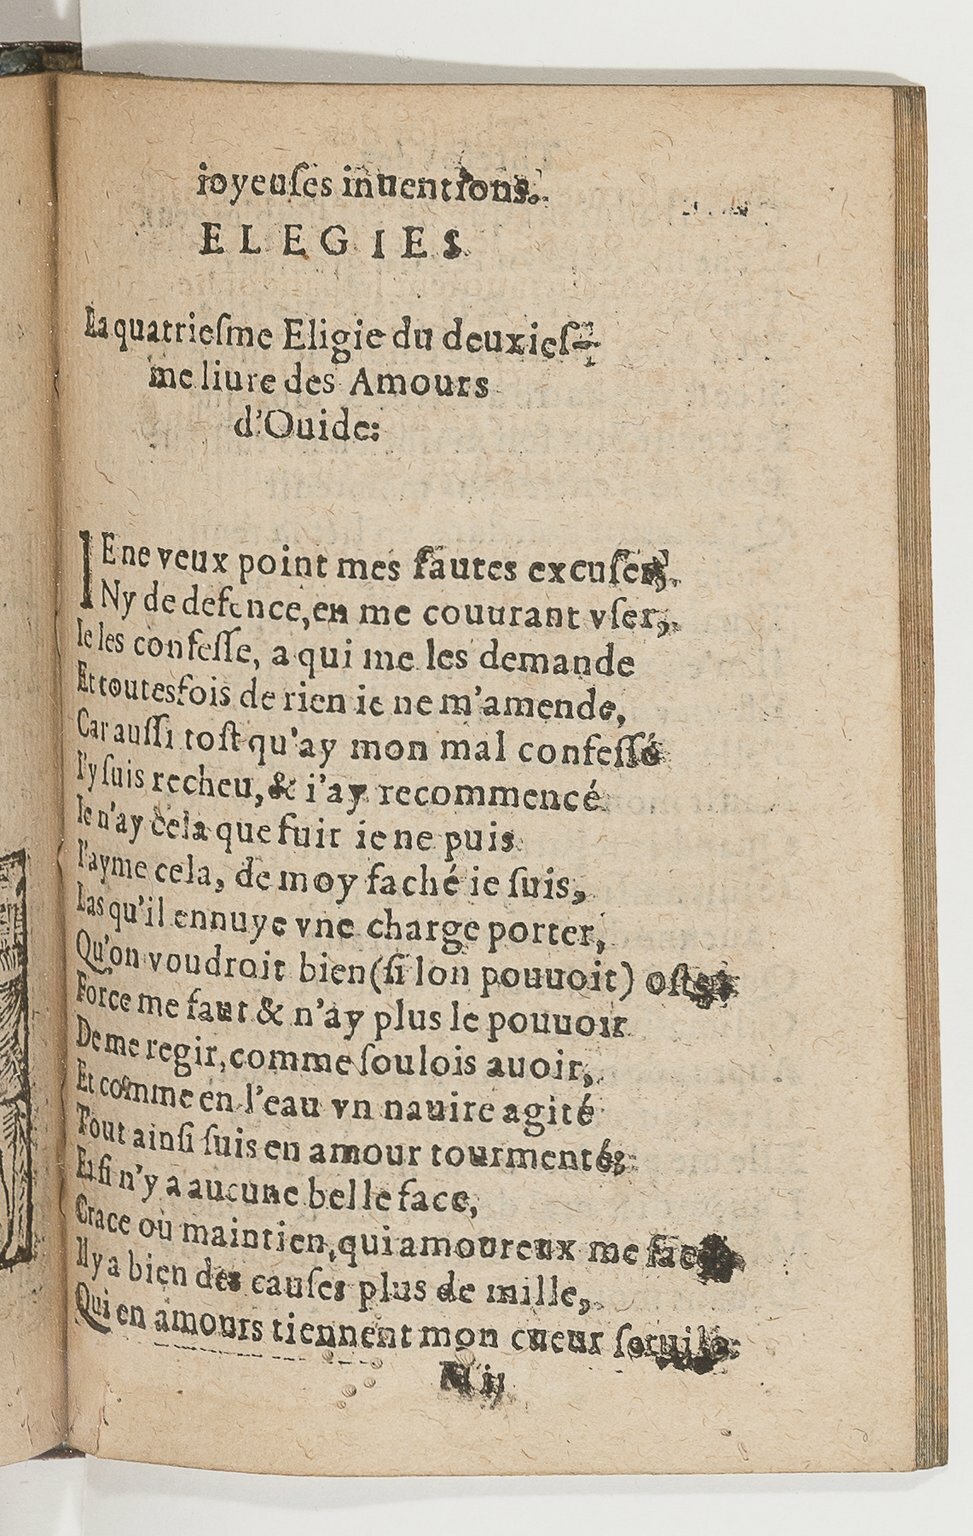 ioyeuſes inuentions.
ELEGIES
La quatrieſme Eligie du deuxieſ-
me liure des Amours
d'Ouide:
IE ne veux point mes fautes excuſer,
Ny de defence, en me couurant vſer,
Ie les confeſſe, a qui me les demande
Et toutesfois de rien ie ne m'amende,
Car auſſi toſt qu'ay mon mal confeſſé
I'y ſuis recheu, & i'ay recommencé
Ie n'ay cela que fuir ie ne puis
I'ayme cela, de moy faché ie ſuis,
Las qu'il ennuye vne charge porter,
Qu'on voudroit bien (ſi lon pouuoit) oſter
Force me faut & n'ay plus le pouuoir
De me regir, comme ſoulois auoir,
Et comme en l'eau vn nauire agité
Tout ainſi ſuis en amour tourmenté:
Et ſi n'y a aucune belle face,
Grace ou maintien, qui amoureux me face
Il y a bien des cauſes plus de mille,
Qui en amours tiennent mon cueur ſeruile:
ij